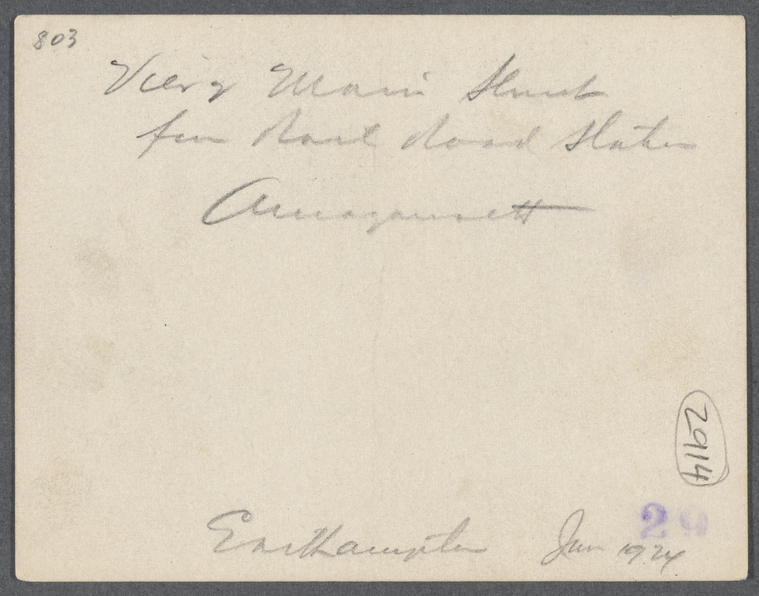 803
View of Main Street
from Rail Road Station
Amagansett
2914
29
Easthampton Jun 1924